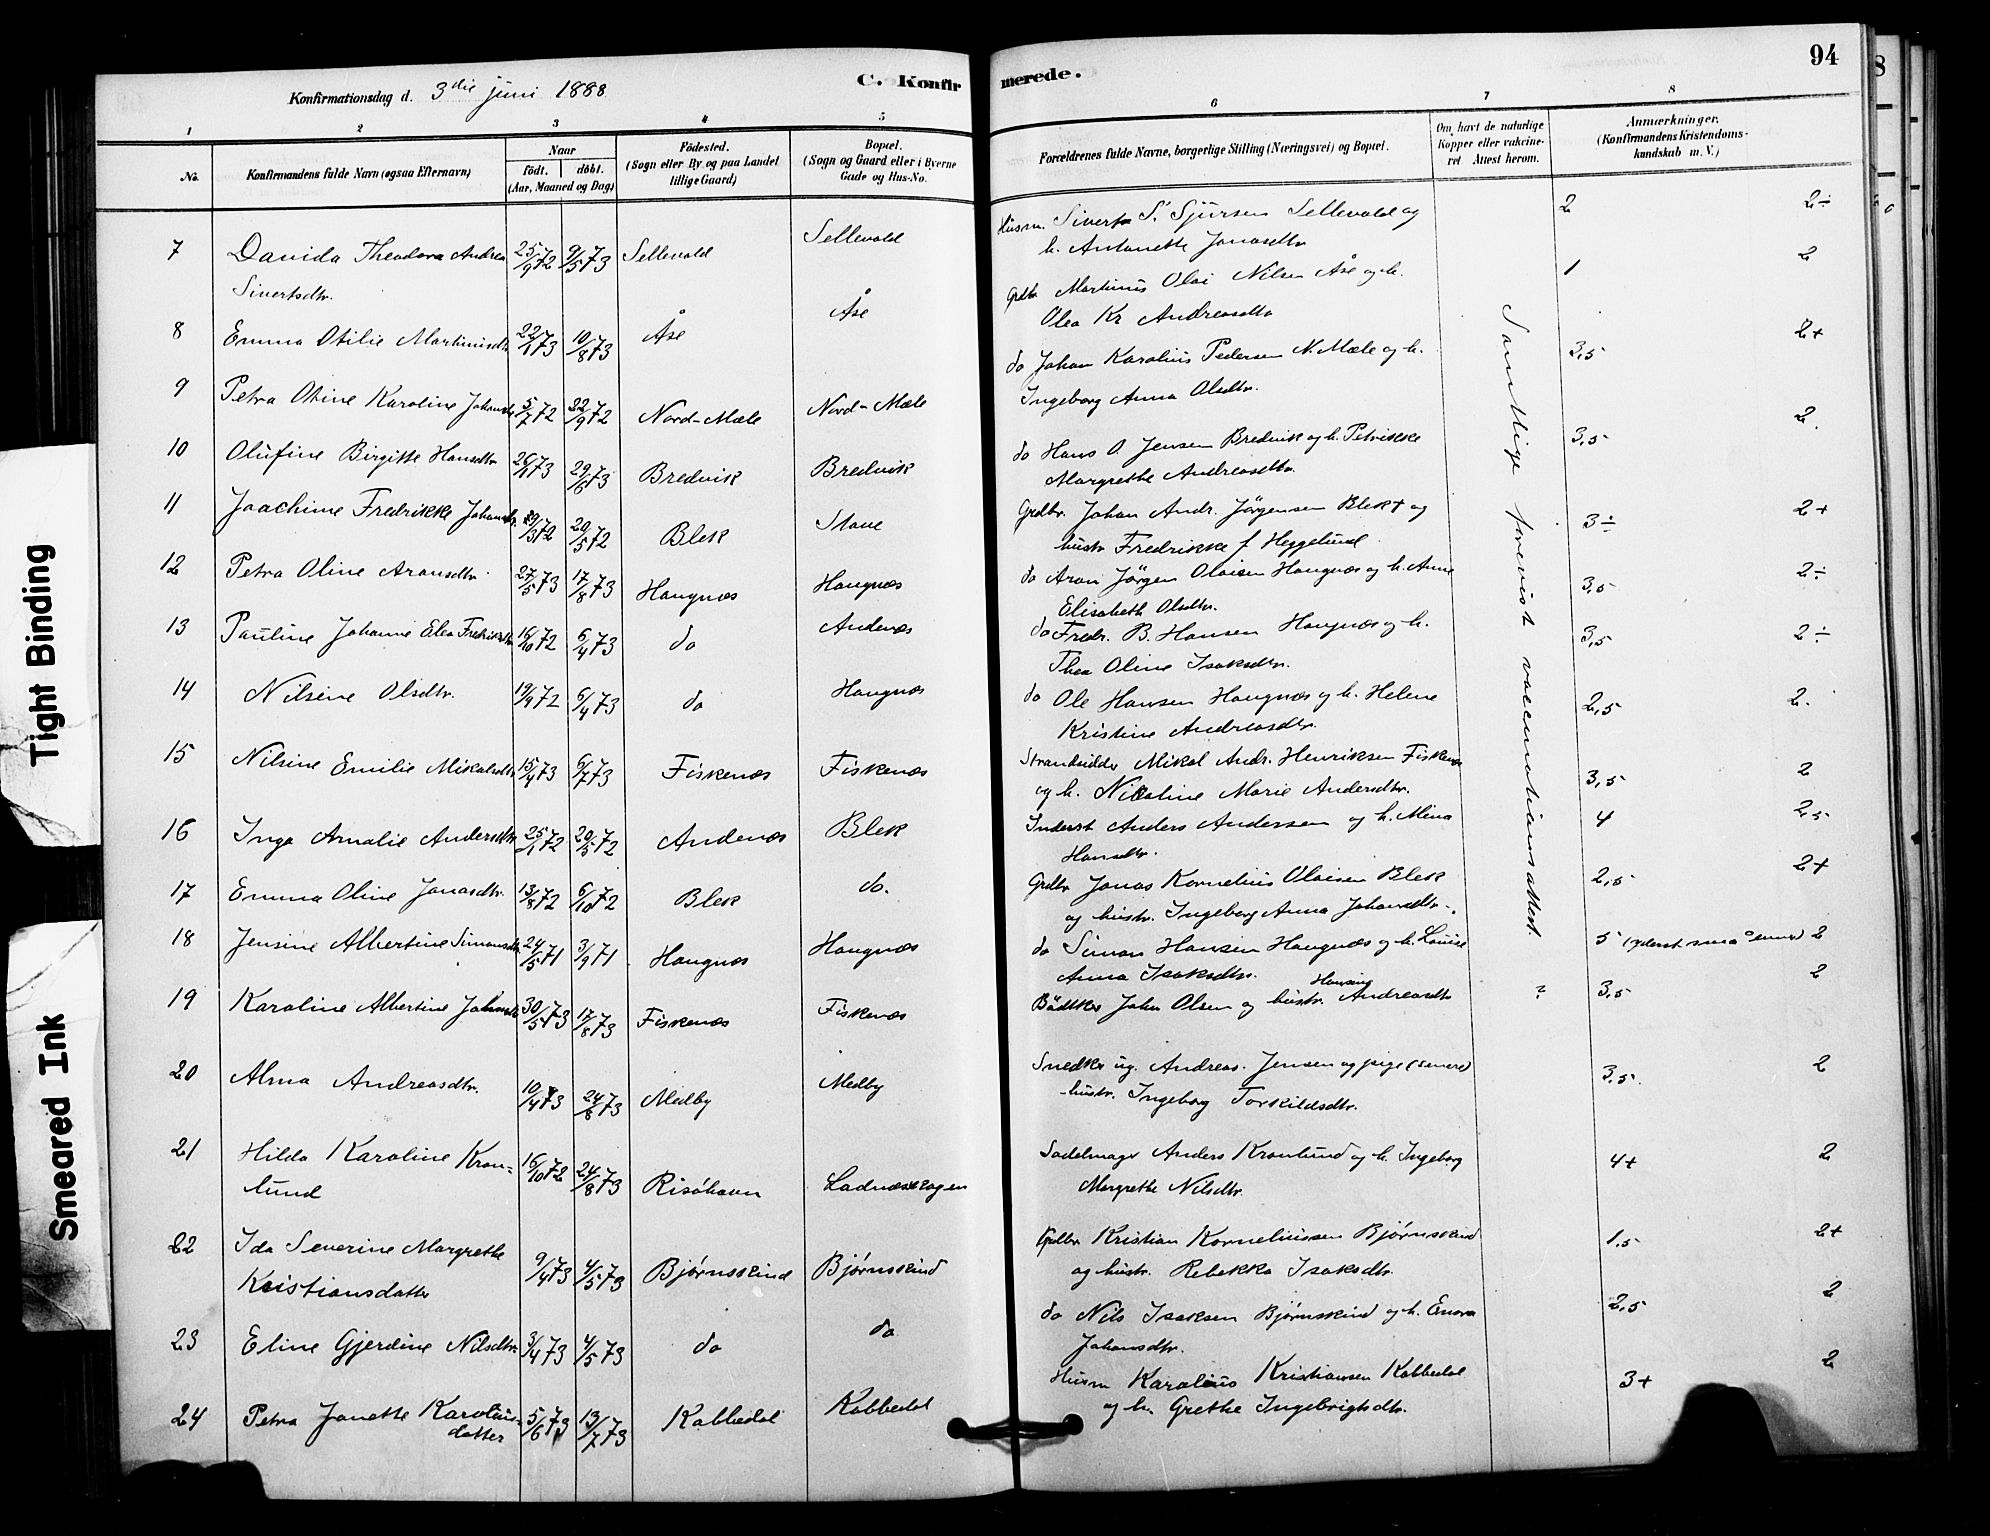 94
C. Konfirmerede.
Konfirmationsdag d. 3die juni 1888
1 2 3 4 5 6 7 8
No. Konfirmandens fulde Navn (ogsaa Efternavn) Naar født. døbt. (Aar, Maaned og Dag) Fødested. (Sogn eller By og paa Landet tillige Gaard) Bopæl. (Sogn og Gaard eller i Byerne Gade og Hus-No. Forældrenes fulde Navne, borgerlige Stilling (Næringsvei) og Bopæl. Om havt de naturlige Kopper eller vakcineret. Attest herom. Anmærkninger. (Konfirmandens Kristendomskundskab m. V.)
7 Davida Theodora Andrea 25/9 72 9/5 73 Sellevold Sellevold Husm. Sivert S. Sjursen Sellevold og 2 2÷
Sivertsdtr. h. Antonette Jonasdtr
8 Emma Otilie Martinusdtr 10/8 73 Åse Åse Grdbr Martinus Olai Nilsen Åse og h. 1 2
Olea Kr Andreasdtr
9 Petra Otine Karoline Johansdtr 5/7 72 22/9 72 Nord-Mæle Nord-Mæle do Johan Karolius Pedersen N. Mæle og h. 3,5 2+
Ingeborg Anna Olsdtr.
10 Olufine Birgitte Hansdtr 29/6 73 Bredvik Bredvik do Hans O. Jensen Bredvik og h. Petrikke 3,5 2.
Margrethe Andreasdtr.
11 Joachime Fredrikke Johansdtr. 29/3 72 20/5 72 Blek Stave Grdbr. Johan Andr. Jørgensen Blek+ og 3÷ 2+
hustr Fredrikke f. Heggelund
12 Petra Oline Aronsdtr. 27/5 73 17/8 73 Haugnæs Haugnæs do Aron Jørgen Olaisen Haugnæs og h. Anne 3,5 2÷
Elisabeth Olsdtr.
13 Pauline Johanne Elea Fredriksdtr 16/10 72 6/4 73 do Andenæs do Fredr. B. Hansen Haugnæs og h. 3,5 2÷
Thea Oline Isaksdtr.
14 Nilsine Olsdtr. 19/9 72 6/4 73 do Haugnæs do Ole Hansen Haugnæs og h. Helene 2,5 2.
Kristine Andreasdtr.
15 Nilsine Emilie Mikalsdtr 15/4 73 6/7 73 Fiskenæs Fiskenæs Strandsidder Mikal Andr. Henriksen Fiskenæs 3,5 2
og h. Nicoline Marie Andersdtr.
16 Inga Amalie Andersdtr 25/1 72 20/5 72 Andenæs Blek Inderst Anders Andersen og h. Mina 4 2,5
Hansdtr.
17 Emma Oline Jonasdtr. 13/8 72 6/10 72 Blek do. Grdbr Jonas Kornelius Olaisen Blek 2,5 2+
og hustr. Ingeborg Anna Johansdtr.
18 Jensine Albertine Simonsdtr 24/5 71 3/9 71 Haugnæs Haugnæs do Simon Hansen Haugnæs og h. Louise 5 (yderst små evner) 2
Anna Isaksdtr.
19 Karoline Albertine Johnsdtr 30/5 73 17/8 73 Fiskenæs Fiskenæs Bødtker John Olsen og hustr. Hansine Andreasdtr ? 3,5 2
20 Alma Andreasdtr. 10/4 73 24/8 73 Medby Medby Snedker ug. Andreas Jensen og pige (senere) 3,5. 2
hustr. Ingeborg Torkildsdtr.
21 Hilda Karoline Kron- 16/10 72 24/8 73 Risøhavn Ladnæsskogen Sadelmager Anders Kronlund og h. Ingeborg 4+ 2
lund Margrethe Nilsdtr.
22 Ida Severine Margrethe 9/4 73 4/5 73 Bjørnskind Bjørnskind Grdbr Kristian Korneliussen Bjørnskind 1,5 2+
Kristiansdatter og hustr. Rebekka Isaksdtr.
23 Eline Gjerdine Nilsdtr. 3/4 73 4/5 73 do do do Nils Isaksen Bjørnskind og h. 2,5 2
Johansdtr.
24 Petra Janette Karolius- 5/6 73 13/7 73 Kobbedal Kobbedal Husm Karolius Kristiansen Kobbedal 3+ 2
datter og h. Grethe Ingebrigtsdtr.
Samtlige forevist vaccinationsattest.
Tight Binding
Smeared Ink